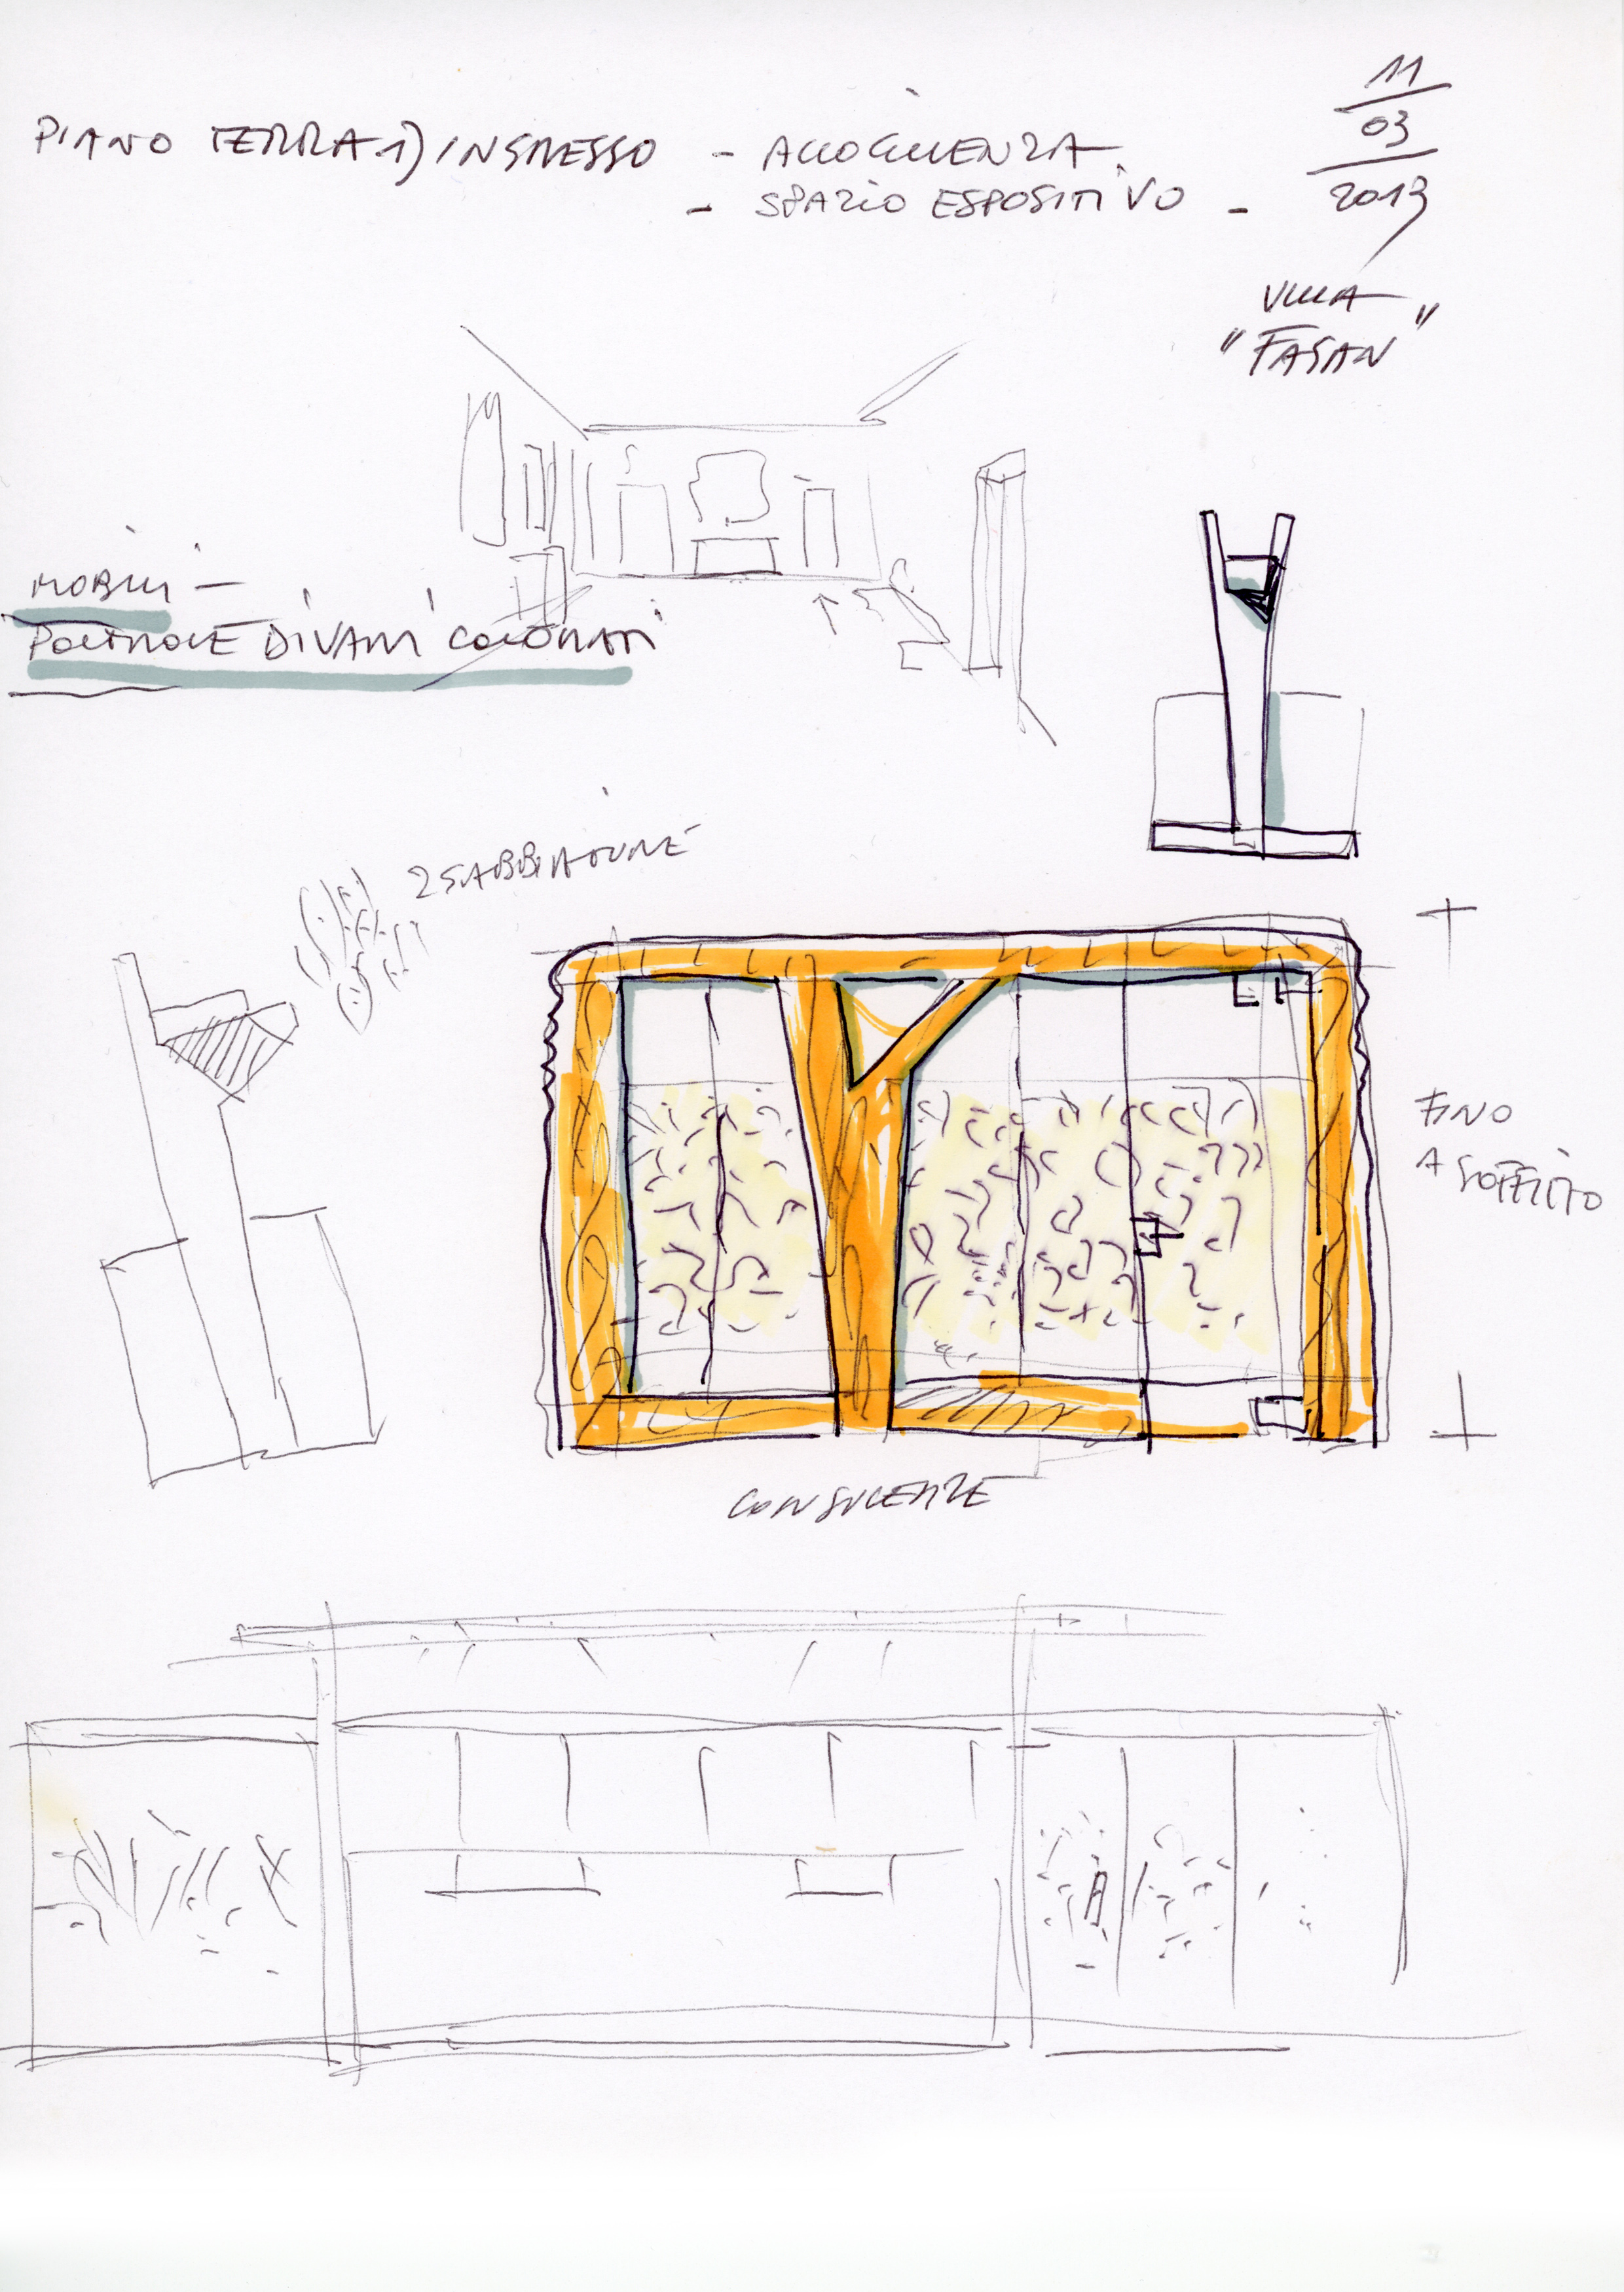 PIANO TERRA 1) INGRESSO - ACCOGLIENZA
- SPAZIO ESPOSITIVO -
11
03
2013
VILLA
"FASAN"
MOBILI -
POLTRONE DIVANI COLORATI
2 SABBIATURE
FINO
A SOFFITTO
CONSULENZE